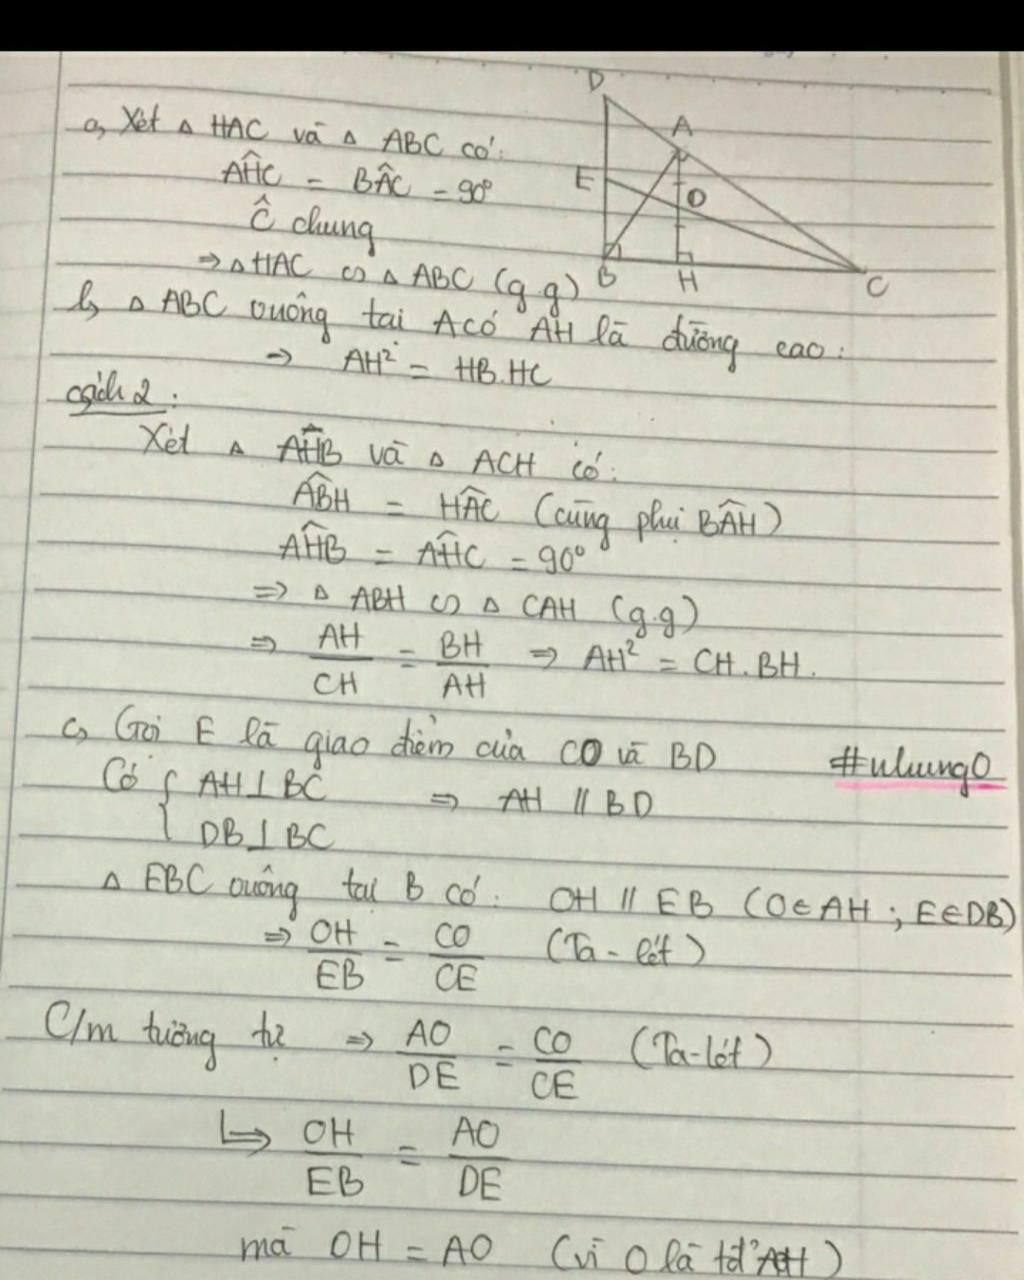 D
a, Xét △ HAC và △ ABC có:
A
AĤC = BÂC = 90°
E
O
Ĉ chung
⇒ △HAC ∽ △ ABC (g.g)
B
H
C
b, △ ABC vuông tại A có AH là đường cao:
⇒ AH² = HB.HC
cách 2:
Xét △ AHB và △ ACH có:
ABH = HÂC (cùng phụ BÂH)
AĤB = AĤC = 90°
⇒ △ ABH ∽ △ CAH (g.g)
⇒ AH/CH = BH/AH ⇒ AH² = CH.BH.
c, Gọi E là giao điểm của CO và BD
#nhung0
Có { AH⊥BC ⇒ AH // BD
DB⊥BC
△ EBC vuông tại B có: OH // EB (O∈AH; E∈DB)
⇒ OH/EB = CO/CE (Ta-lét)
C/m tương tự ⇒ AO/DE = CO/CE (Ta-lét)
↳⇒ OH/EB = AO/DE
mà OH = AO (vì O là tđ AH)